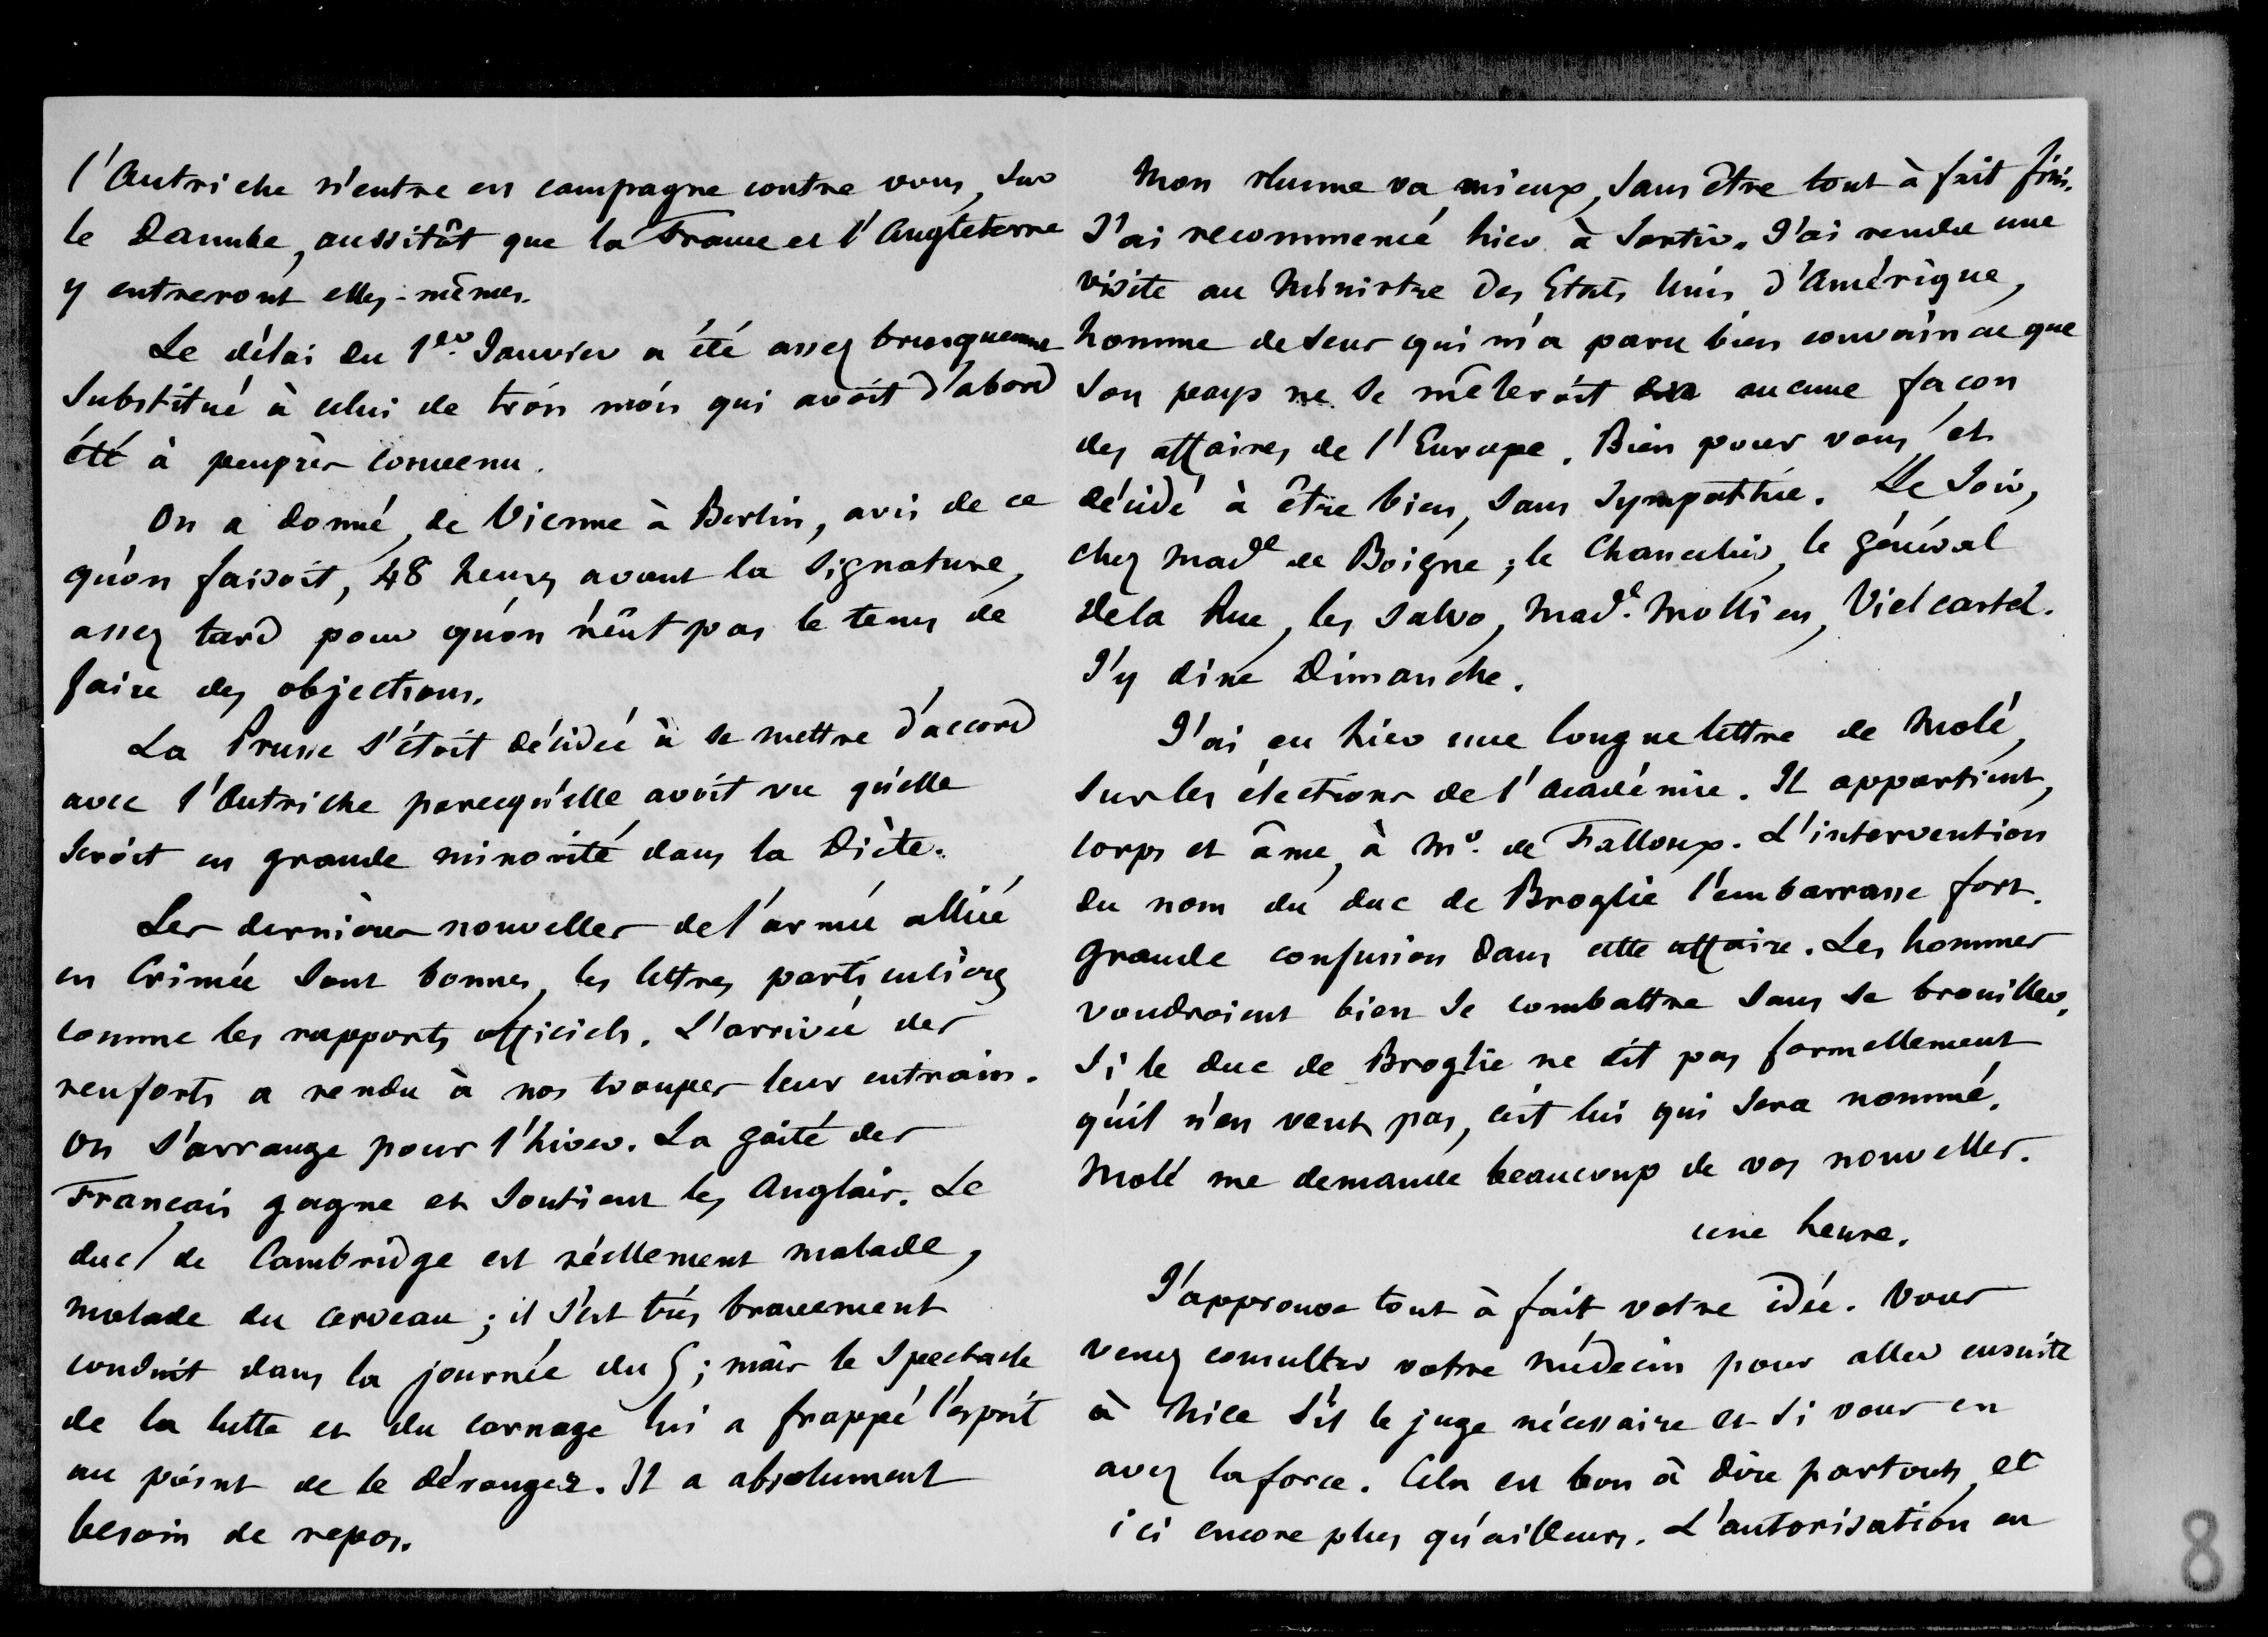 l'Autriche n'entre en campagne contre vous, sur
le Danube, aussitôt que la France et l'Angleterre
y entreront elles-mêmes.
Le délai du 1er. Janvier a été assez brusquement
substitué à celui de trois mois qui avoit d'abord
été à peuprès convenu.
On a donné, de Vienne à Berlin, avis de ce
qu'on faisoit, 48 heures avant la signature,
assez tard pour qu'on n'eût pas le tems de
faire des objections.
La Prusse s'étoit décidée à se mettre d'accord
avec l'Autriche parcequ'elle avoit vu qu'elle
seroit en grande minorité dans la Diète.
Les dernières nouvelles de l'armée alliée
en Crimée sont bonnes, les lettres particulières
comme les rapports officiels. L'arrivée des
renforts a rendu à nos troupes leur entrain.
On s'arrange pour l'hiver. La gaité des
Français gagne et soutient les Anglais. Le
duc de Cambridge est réellement malade,
malade du cerveau ; il s'est très bravement
conduit dans la journée du 5 ; mais le spectacle
de la lutte et du carnage lui a frappé l'esprit
au point de le déranger. Il a absolument
besoin de repos.
Mon rhume va mieux, sans être tout à fait fini.
J'ai recommencé hier à sortir. J'ai rendu une
visite au Ministre des Etats Unis d'Amérique,
homme de sens qui m'a paru bien convaincu que
son pays ne se mêleroit en aucune façon
des affaires de l'Europe. Bien pour vous et
décidé à être bien, sans sympathie. Le soir,
chez Made de Boigne ; le Chancelier, le général
de la Rue, les Salvo, Made. Mollien, Vielcastel.
J'y dine Dimanche.
J'ai eu hier une longue lettre de Molé,
sur les élections de l'Académie. Il appartient,
corps et âme, à Mr. de Falloux. L'intervention
du nom du duc de Broglie l'embarrasse fort.
Grande confusion dans cette affaire. Les hommes
voudroient bien se combattre sans se brouiller.
Si le duc de Broglie ne dit pas formellement
qu'il n'en veut pas, c'est lui qui sera nommé.
Molé me demande beaucoup de vos nouvelles.
une heure.
J'approuve tout à fait votre idée. Vous
venez consulter votre médecin pour aller ensuite
à Nice s'il le juge nécessaire et si vous en
avez la force. Cela est bon à dire partout, et
ici encore plus qu'ailleurs. L'autorisation en
8